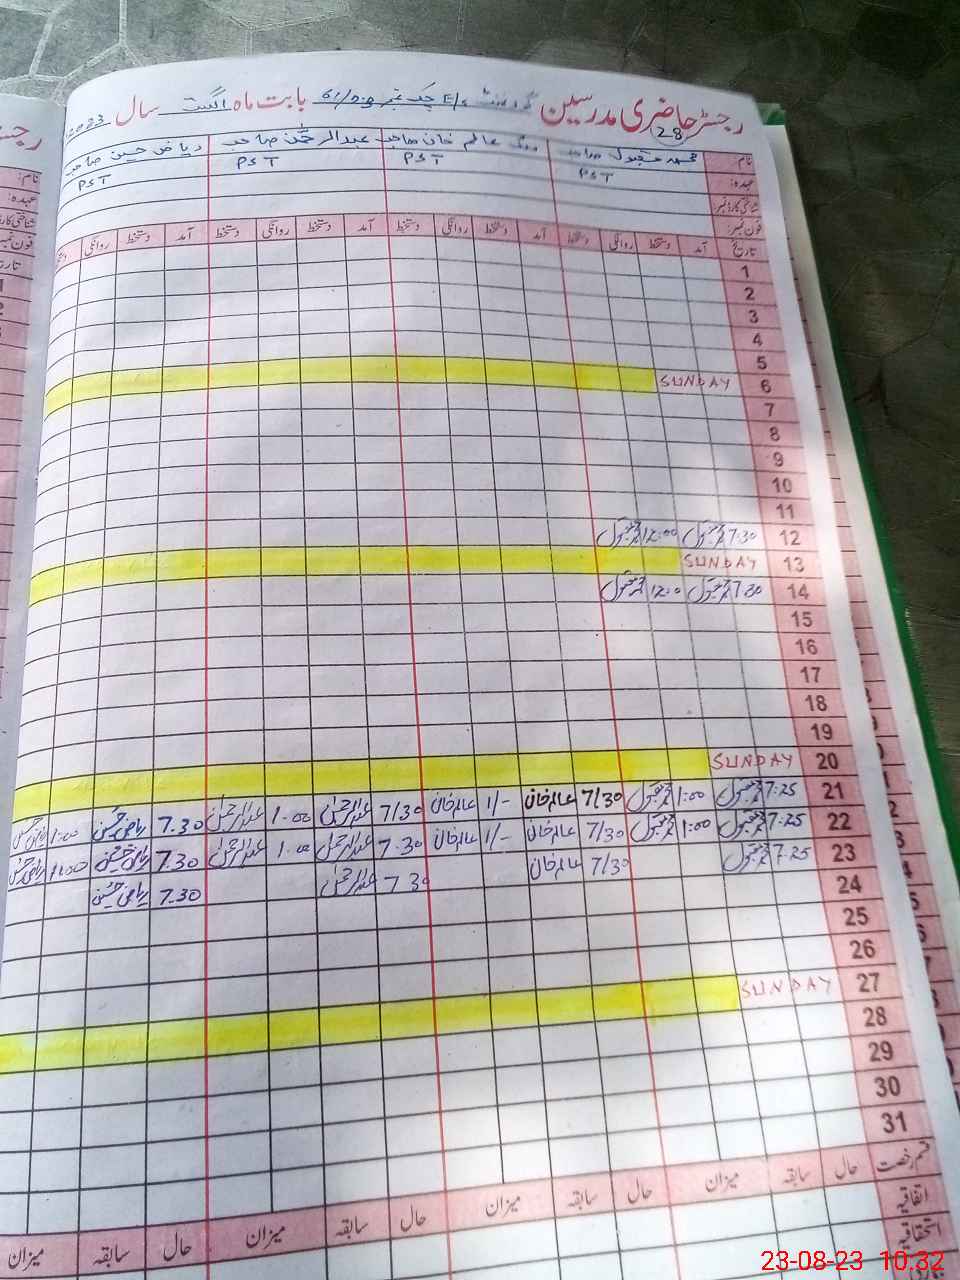 رجسٹر حاضری مدرسین گورنمنٹ E/S چک نمبر 61/2.R بابت ماہ اگست سال 2023
28
نام: محمد مقبول صاحب ملک عالم خان صاحب عبدالرحمٰن صاحب ریاض حسین صاحب
عہدہ: PST PST PST PST
شناختی کارڈ نمبر
فون نمبر:
تاریخ آمد دستخط روانگی دستخط آمد دستخط روانگی دستخط آمد دستخط روانگی دستخط آمد دستخط روانگی
1
2
3
4
5
6 SUNDAY
7
8
9
10
11
12 7:30 محمد مقبول 12:00 محمد مقبول
13 SUNDAY
14 7:30 محمد مقبول 12:0 محمد مقبول
15
16
17
18
19
20 SUNDAY
21 7:25 محمد مقبول 1:00 محمد مقبول 7/30 عالم خان 1/- عالم خان 7/30 عبدالرحمٰن 1.00 عبدالرحمٰن 7.30 ریاض حسین 1:00 ریاض حسین
22 7.25 محمد مقبول 1:00 محمد مقبول 7/30 عالم خان 1/- عالم خان 7.30 عبدالرحمٰن 1.00 عبدالرحمٰن 7.30 ریاض حسین 1:00 ریاض حسین
23 7.25 محمد مقبول 7/30 عالم خان 7 30 عبدالرحمٰن 7.30 ریاض حسین
24
25
26
27 SUNDAY
28
29
30
31
قسم رخصت حال سابقہ میزان حال سابقہ میزان حال سابقہ میزان حال سابقہ میزان
اتفاقیہ
استحقاقیہ
23-08-23 10:32